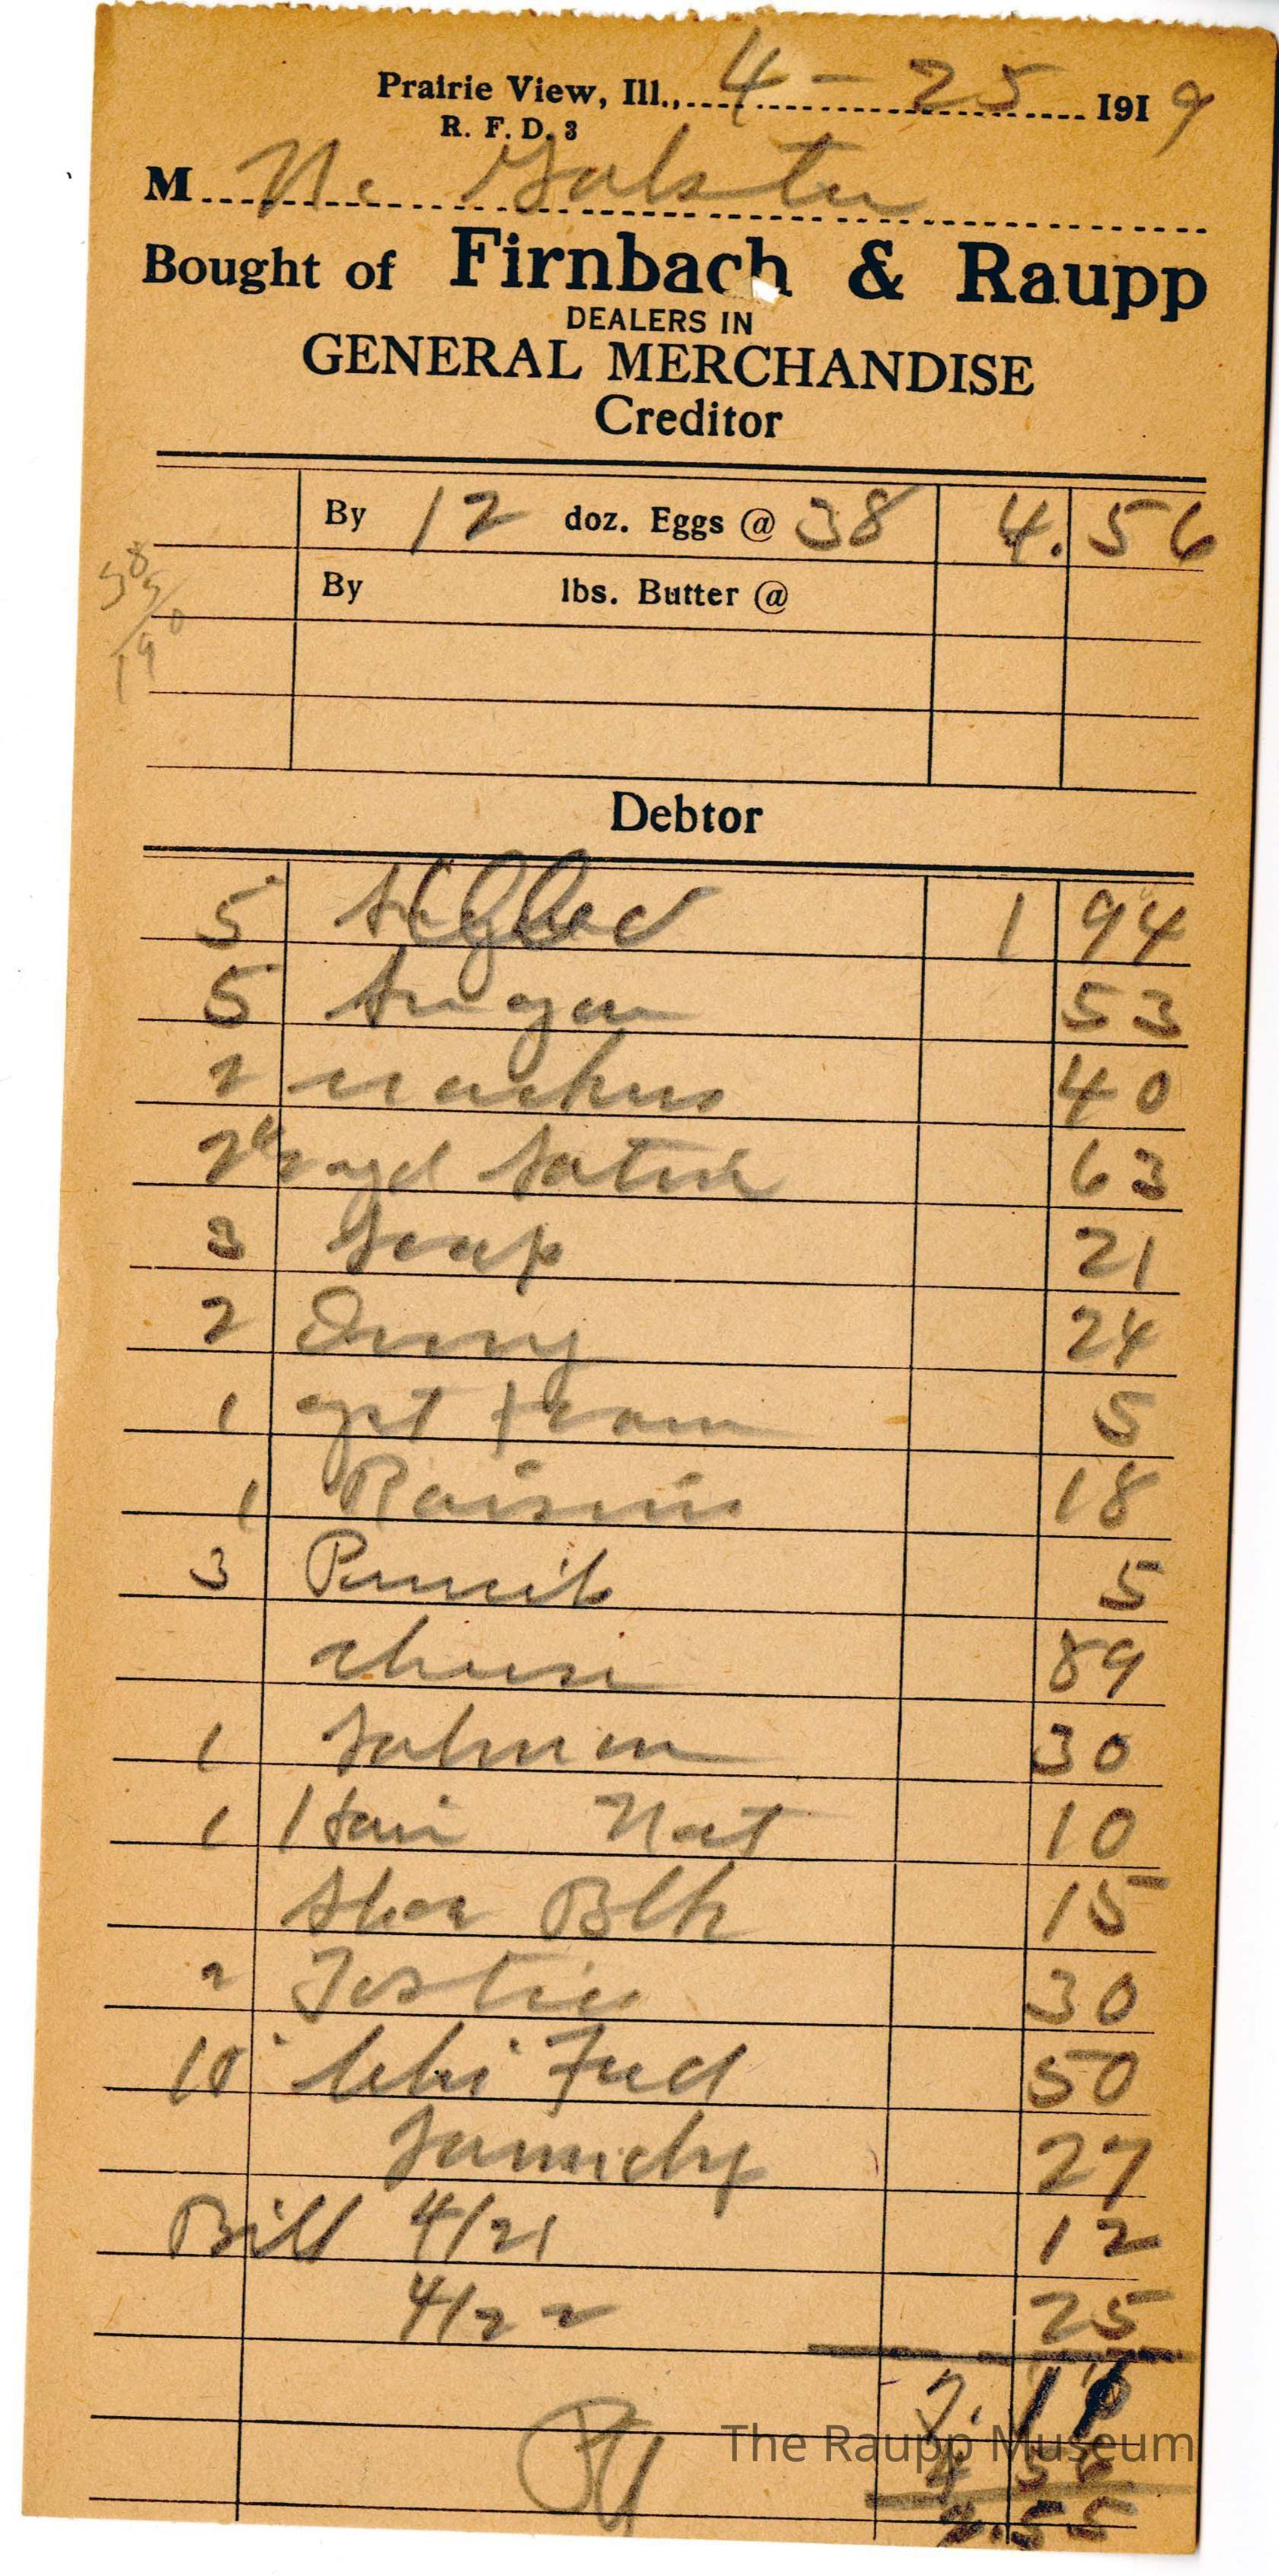 Prairie View, Ill., 4 - 25 1919
R. F. D. 3
M
Bought of Firnbach & Raupp
DEALERS IN
GENERAL MERCHANDISE
Creditor
By 12 doz. Eggs @ 38 4. 56
By lbs. Butter @
385
190
Debtor
5 1 94
5 Sugar 53
2 40
yd Satin 63
3 Soap 21
2 24
1 5
1 Raisins 18
3 Pencils 5
cheese 89
1 Salmon 30
1 Hair Net 10
Shoe Blk 15
2 30
10 Chi Feed 50
27
Bill 4/21 12
4/22 25
7. 11
4 56
2.55
The Raupp Museum